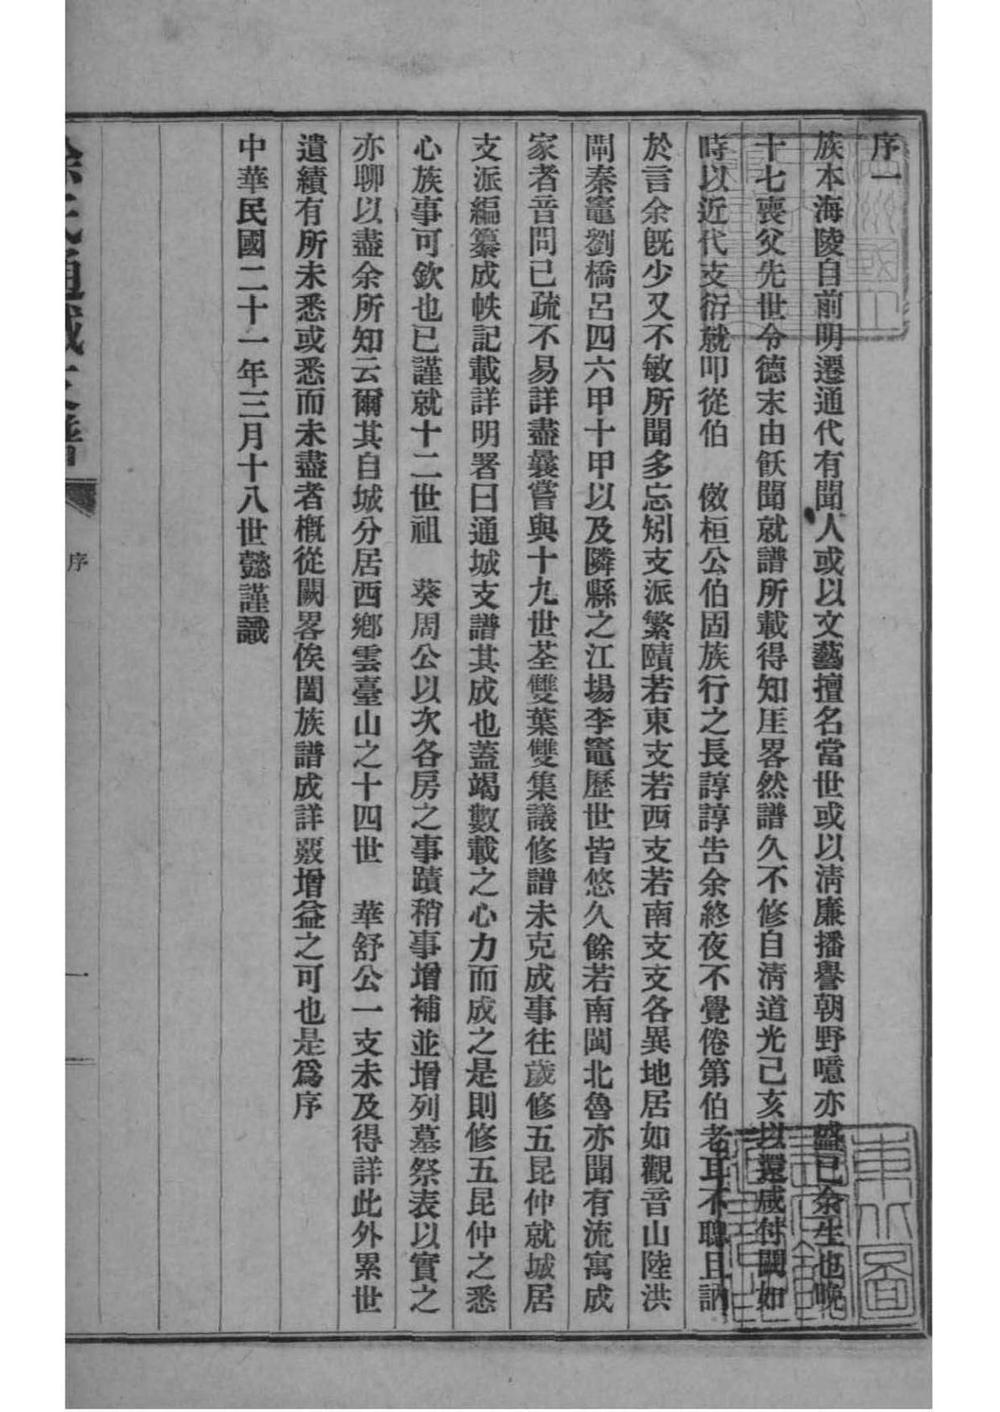 序一
族本海陵自前明遷通代有聞人或以文藝擅名當世或以淸廉播譽朝野噫亦盛已余生也晚
十七喪父先世令德末由飫聞就譜所載得知厓畧然譜久不修自淸道光己亥以還咸付闕如
時以近代支衍就叩從伯 儆桓公伯固族行之長諄諄吿余終夜不覺倦第伯老耳不聰且訥
於言余旣少又不敏所聞多忘矧支派繁賾若東支若西支若南支支各異地居如觀音山陸洪
閘秦竈劉橋呂四六甲十甲以及隣縣之江塲李竈歷世皆悠久餘若南閩北魯亦聞有流寓成
家者音問已疏不易詳盡曩嘗與十九世荃雙葉雙集議修譜未克成事往歲修五昆仲就城居
支派編纂成帙記載詳明署曰通城支譜其成也蓋竭數載之心力而成之是則修五昆仲之悉
心族事可欽也已謹就十二世祖 葵周公以次各房之事蹟稍事增補並增列墓祭表以實之
亦聊以盡余所知云爾其自城分居西鄕雲臺山之十四世 華舒公一支未及得詳此外累世
遺績有所未悉或悉而未盡者槪從闕畧俟闔族譜成詳覈增益之可也是爲序
中華民國二十一年三月十八世懿謹識
氏通城支譜
序
一